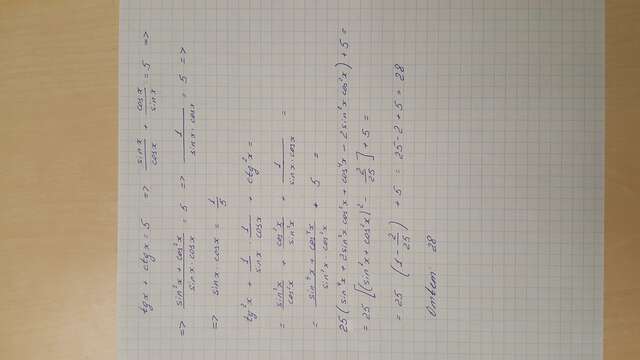 tgx + ctgx = 5 => sinx/cosx + cosx/sinx = 5 =>
=> (sin²x + cos²x)/(sinx·cosx) = 5 => 1/(sinx·cosx) = 5 =>
=> sinx·cosx = 1/5
tg²x + 1/sinx 1/cosx + ctg²x =
= sin²x/cos²x + cos²x/sin²x + 1/(sinx·cosx) =
= (sin⁴x + cos⁴x)/(sin²x cos²x) + 5 =
25(sin⁴x + 2sin²x cos²x + cos⁴x - 2sin²x cos²x) + 5 =
= 25[(sin²x + cos²x)² - 2/25] + 5 =
= 25 (1 - 2/25) + 5 = 25 - 2 + 5 = 28
Ответ 28